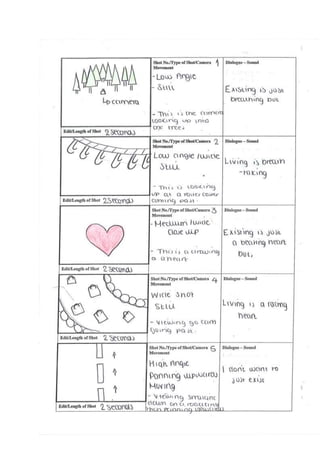 Shot No./Type of Shot/Camera 1
Movement
- Low Angle
- Still
- This is the camera
looking up into
the trees
Dialogue – Sound
Existing is just
breathing but
Camera
Edit/Length of Shot 2 Seconds
Shot No./Type of Shot/Camera 2
Movement
Low angle/wide
Still
- This is looking
up as a roller coaster
Dialogue – Sound
Living is breath
-taking
Edit/Length of Shot 2 Seconds
Shot No./Type of Shot/Camera 3
Movement
- Medium/wide
close up
- This is a drawing
of a heart
Dialogue – Sound
Existing is just
a beating heart
but,
Edit/Length of Shot 2 Seconds
Shot No./Type of Shot/Camera 4
Movement
Wide Shot
Still
Dialogue – Sound
Living is a racing
heart
Edit/Length of Shot 2 Seconds
Shot No./Type of Shot/Camera 5
Movement
High Angle
Panning upwards
Moving
Dialogue – Sound
I don't want to
just exist
Edit/Length of Shot 2 Seconds